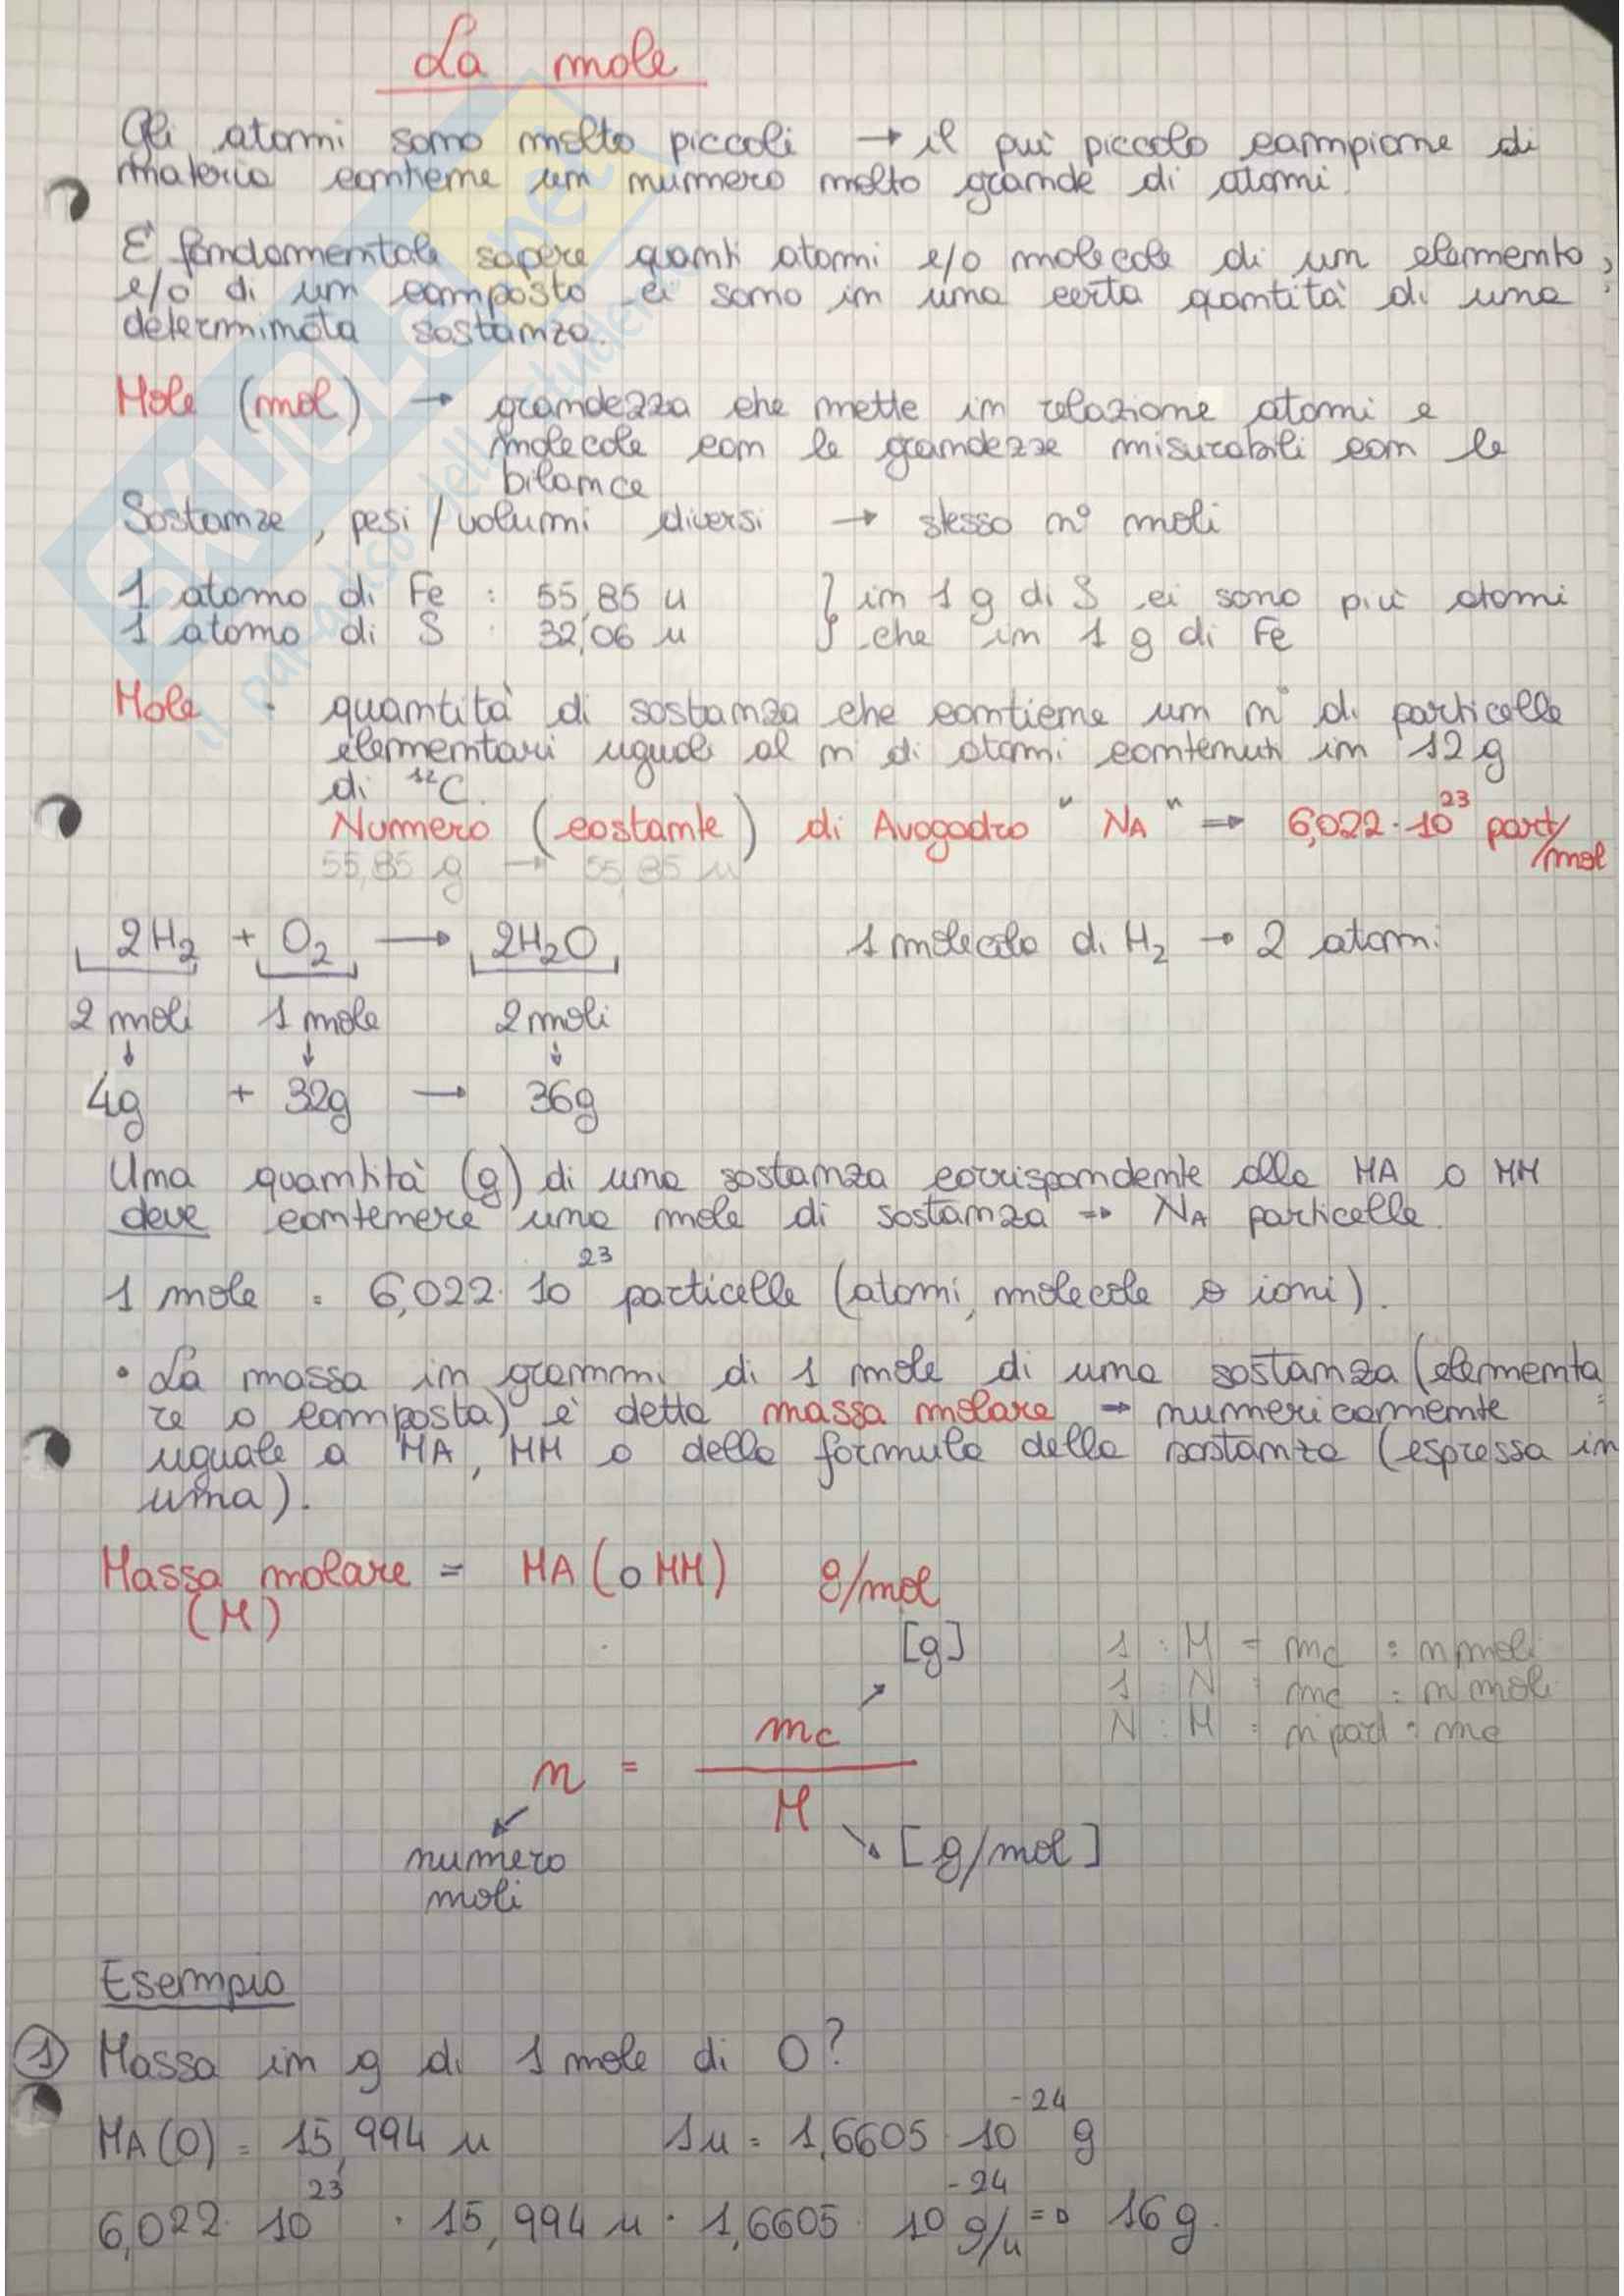 La mole
Gli atomi sono molto piccoli → il più piccolo campione di
materia contiene un numero molto grande di atomi.
È fondamentale sapere quanti atomi e/o molecole di un elemento,
e/o di un composto ci sono in una certa quantità di una
determinata sostanza.
Mole (mol) → grandezza che mette in relazione atomi e
molecole con le grandezze misurabili con le
bilance
Sostanze, pesi/volumi diversi → stesso n° moli
1 atomo di Fe : 55,85 u } in 1 g di S ci sono più atomi
1 atomo di S : 32,06 u } che in 1 g di Fe
Mole : quantità di sostanza che contiene un n° di particelle
elementari uguali al n di atomi contenuti in 12 g
di ¹²C.
Numero (costante) di Avogadro "NA" ⇒ 6,022·10²³ part/mol
55,85 g → 55,85 u
2H₂ + O₂ → 2H₂O 1 molecola di H₂ → 2 atomi
2 moli 1 mole 2 moli
↓ ↓ ↓
4g + 32g → 36g
Una quantità (g) di una sostanza corrispondente alla MA o MM
deve contenere una mole di sostanza ⇒ NA particelle.
1 mole = 6,022·10²³ particelle (atomi, molecole o ioni).
• La massa in grammi di 1 mole di una sostanza (elementa
re o composta) è detta massa molare → numericamente
uguale a MA, MM o della formula della sostanza (espressa in
uma).
Massa molare = MA (o MM) g/mol
(M)
[g]
1 : M = mc : n moli
1 : N = mc : n moli
N : M = n part : mc
n = mc / M
numero
moli
[g/mol]
Esempio
① Massa in g di 1 mole di O?
MA(O) = 15,994 u 1u = 1,6605·10⁻²⁴ g
6,022·10²³ · 15,994 u · 1,6605·10⁻²⁴ g/u ⇒ 16g.
SKUOLA.net
il paradiso dello studente